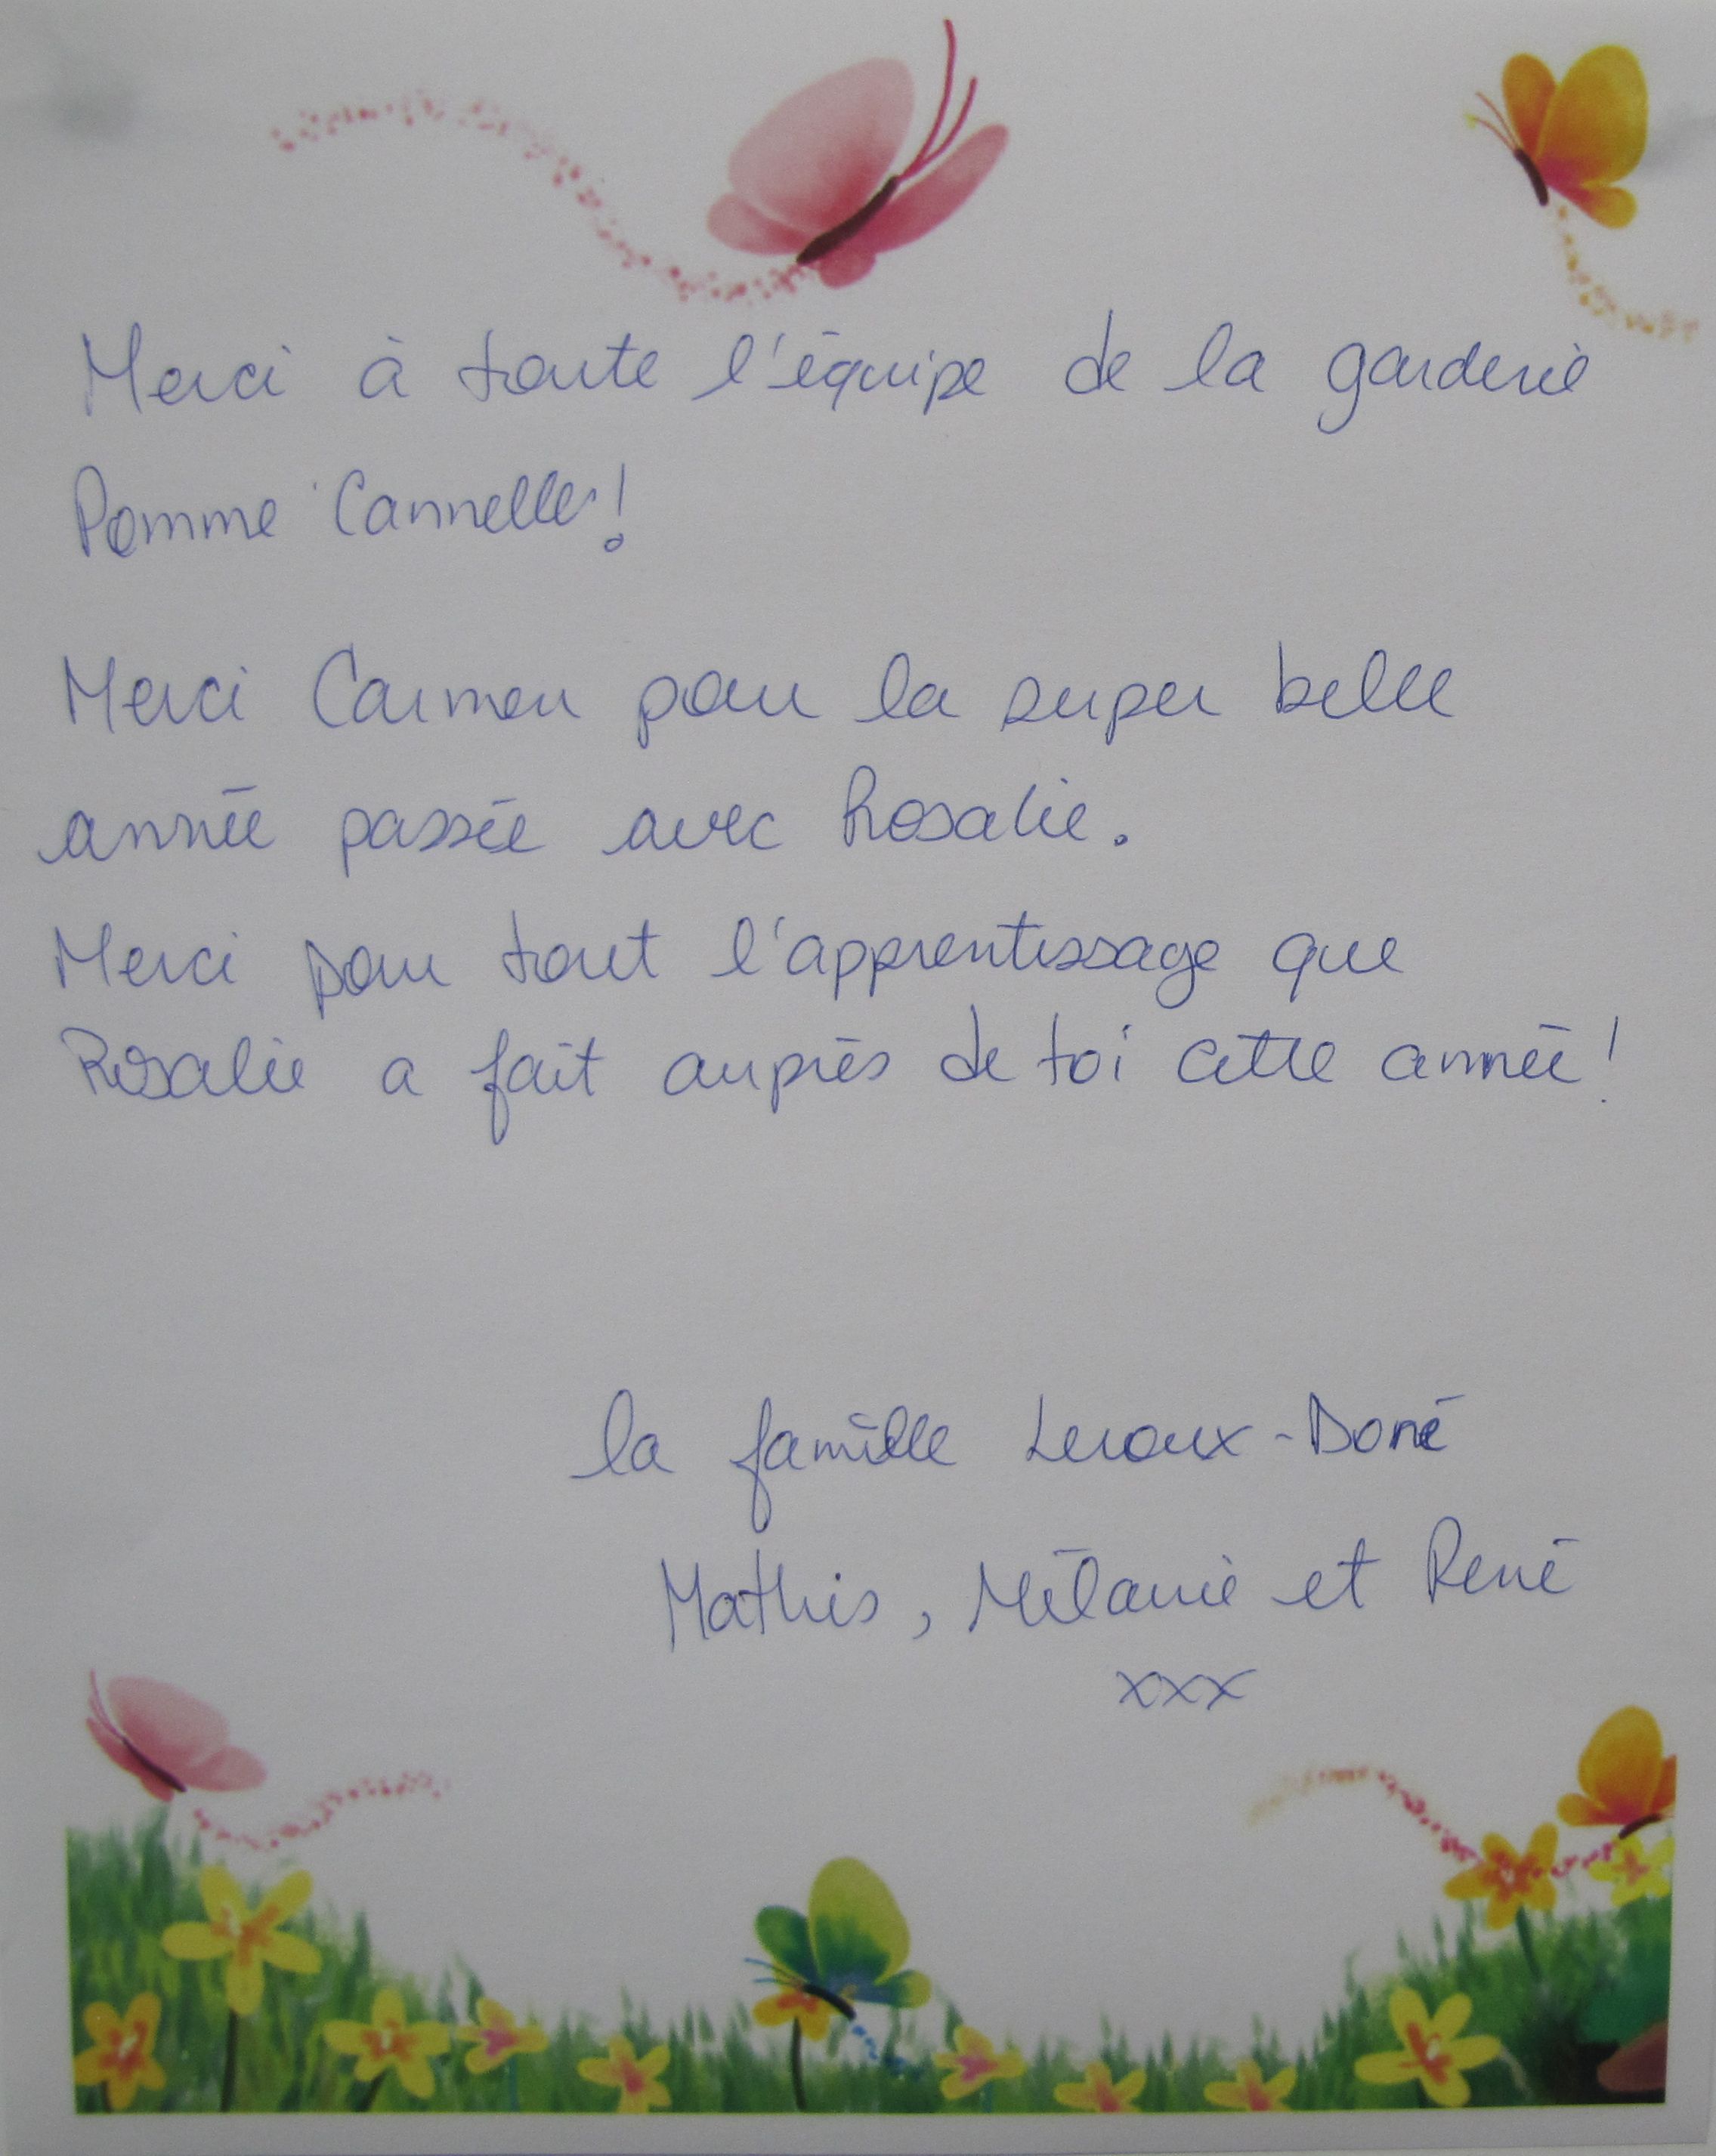 Merci à toute l'équipe de la garderie
Pomme Cannelle!
Merci Carmen pour la super belle
année passée avec Rosalie.
Merci pour tout l'apprentissage que
Rosalie a fait auprès de toi cette année!
la famille Leroux-Doré
Mathis, Mélanie et René
xxx